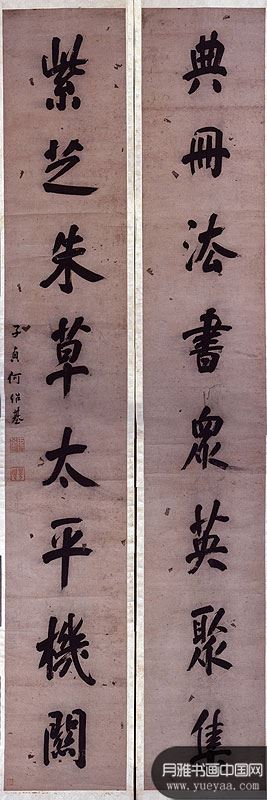 典冊法書眾英聚集
紫芝朱草太平機關
子貞何紹基
月雅书画中国网
www.yueyaa.com